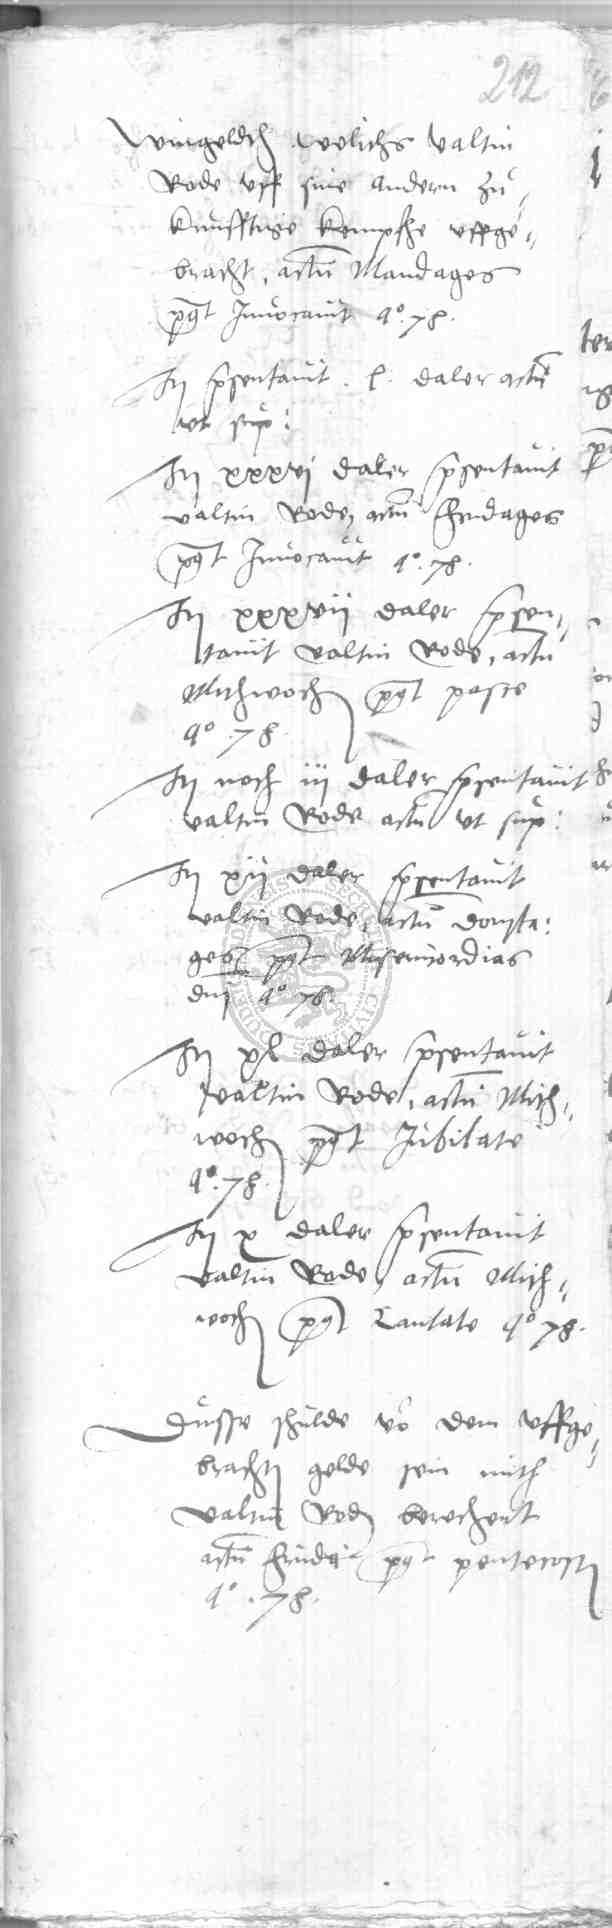 212
Wingeldth welichs Valtin
Rode uff sine andern zu=
kunfftige kempffe uffge=
bracht, actu Mandages
pqt Invocavit aº. 78.
It psentavit . l . daler actu
ut sup:
It xxxvj daler psentavit
valtin Rode, actu fridages
pqt Invocavit aº. 78.
It xxxvij daler psen=
tavit valtin Rode, actu
Mithwoch pqt pasce
aº .78.
It noch iij daler psentavit
valtin Rode actu ut sup:
It xij daler psentavit
valtin Rode, actu Donsta:
ges pqt Misericordias
dni aº 78.
It xl daler psentavit
valtin Rode, actu Mith=
woch pqt Jubilate
aº. 78.
It x daler psentavit
valtin Rode, actu Mith=
woch pqt Cantate aº 78.
Dusse schulde vo dem uffge=
bracht gelde sein mith
valtin Rod berechent
actu frida pqt pentecost
aº .78.